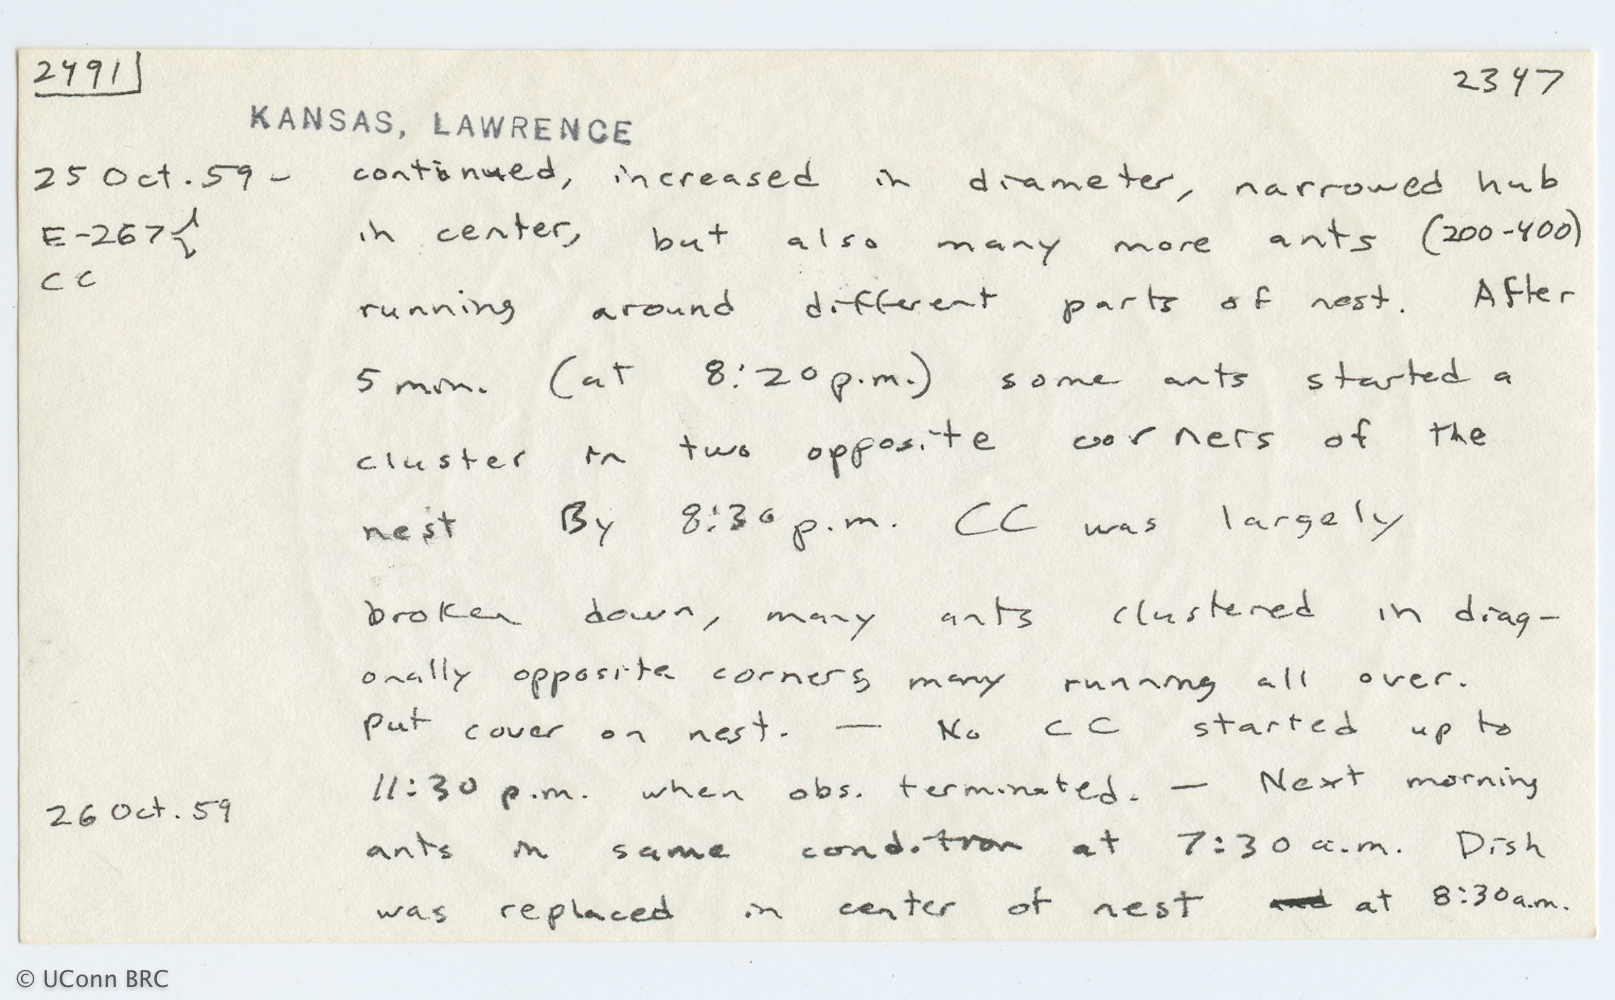 2491
2347
KANSAS, LAWRENCE
25 Oct. 59 - continued, increased in diameter, narrowed hub
E-267 in center, but also many more ants (200-400)
CC
running around different parts of nest. After
5 min. (at 8:20 p.m.) some ants started a
cluster in two opposite corners of the
nest By 8:30 p.m. CC was largely
broken down, many ants clustered in diag-
onally opposite corners, many running all over.
Put cover on nest. — No CC started up to
11:30 p.m. when obs. terminated. — Next morning
26 Oct. 59
ants in same condition at 7:30 a.m. Dish
was replaced in center of nest and at 8:30 a.m.
© UConn BRC